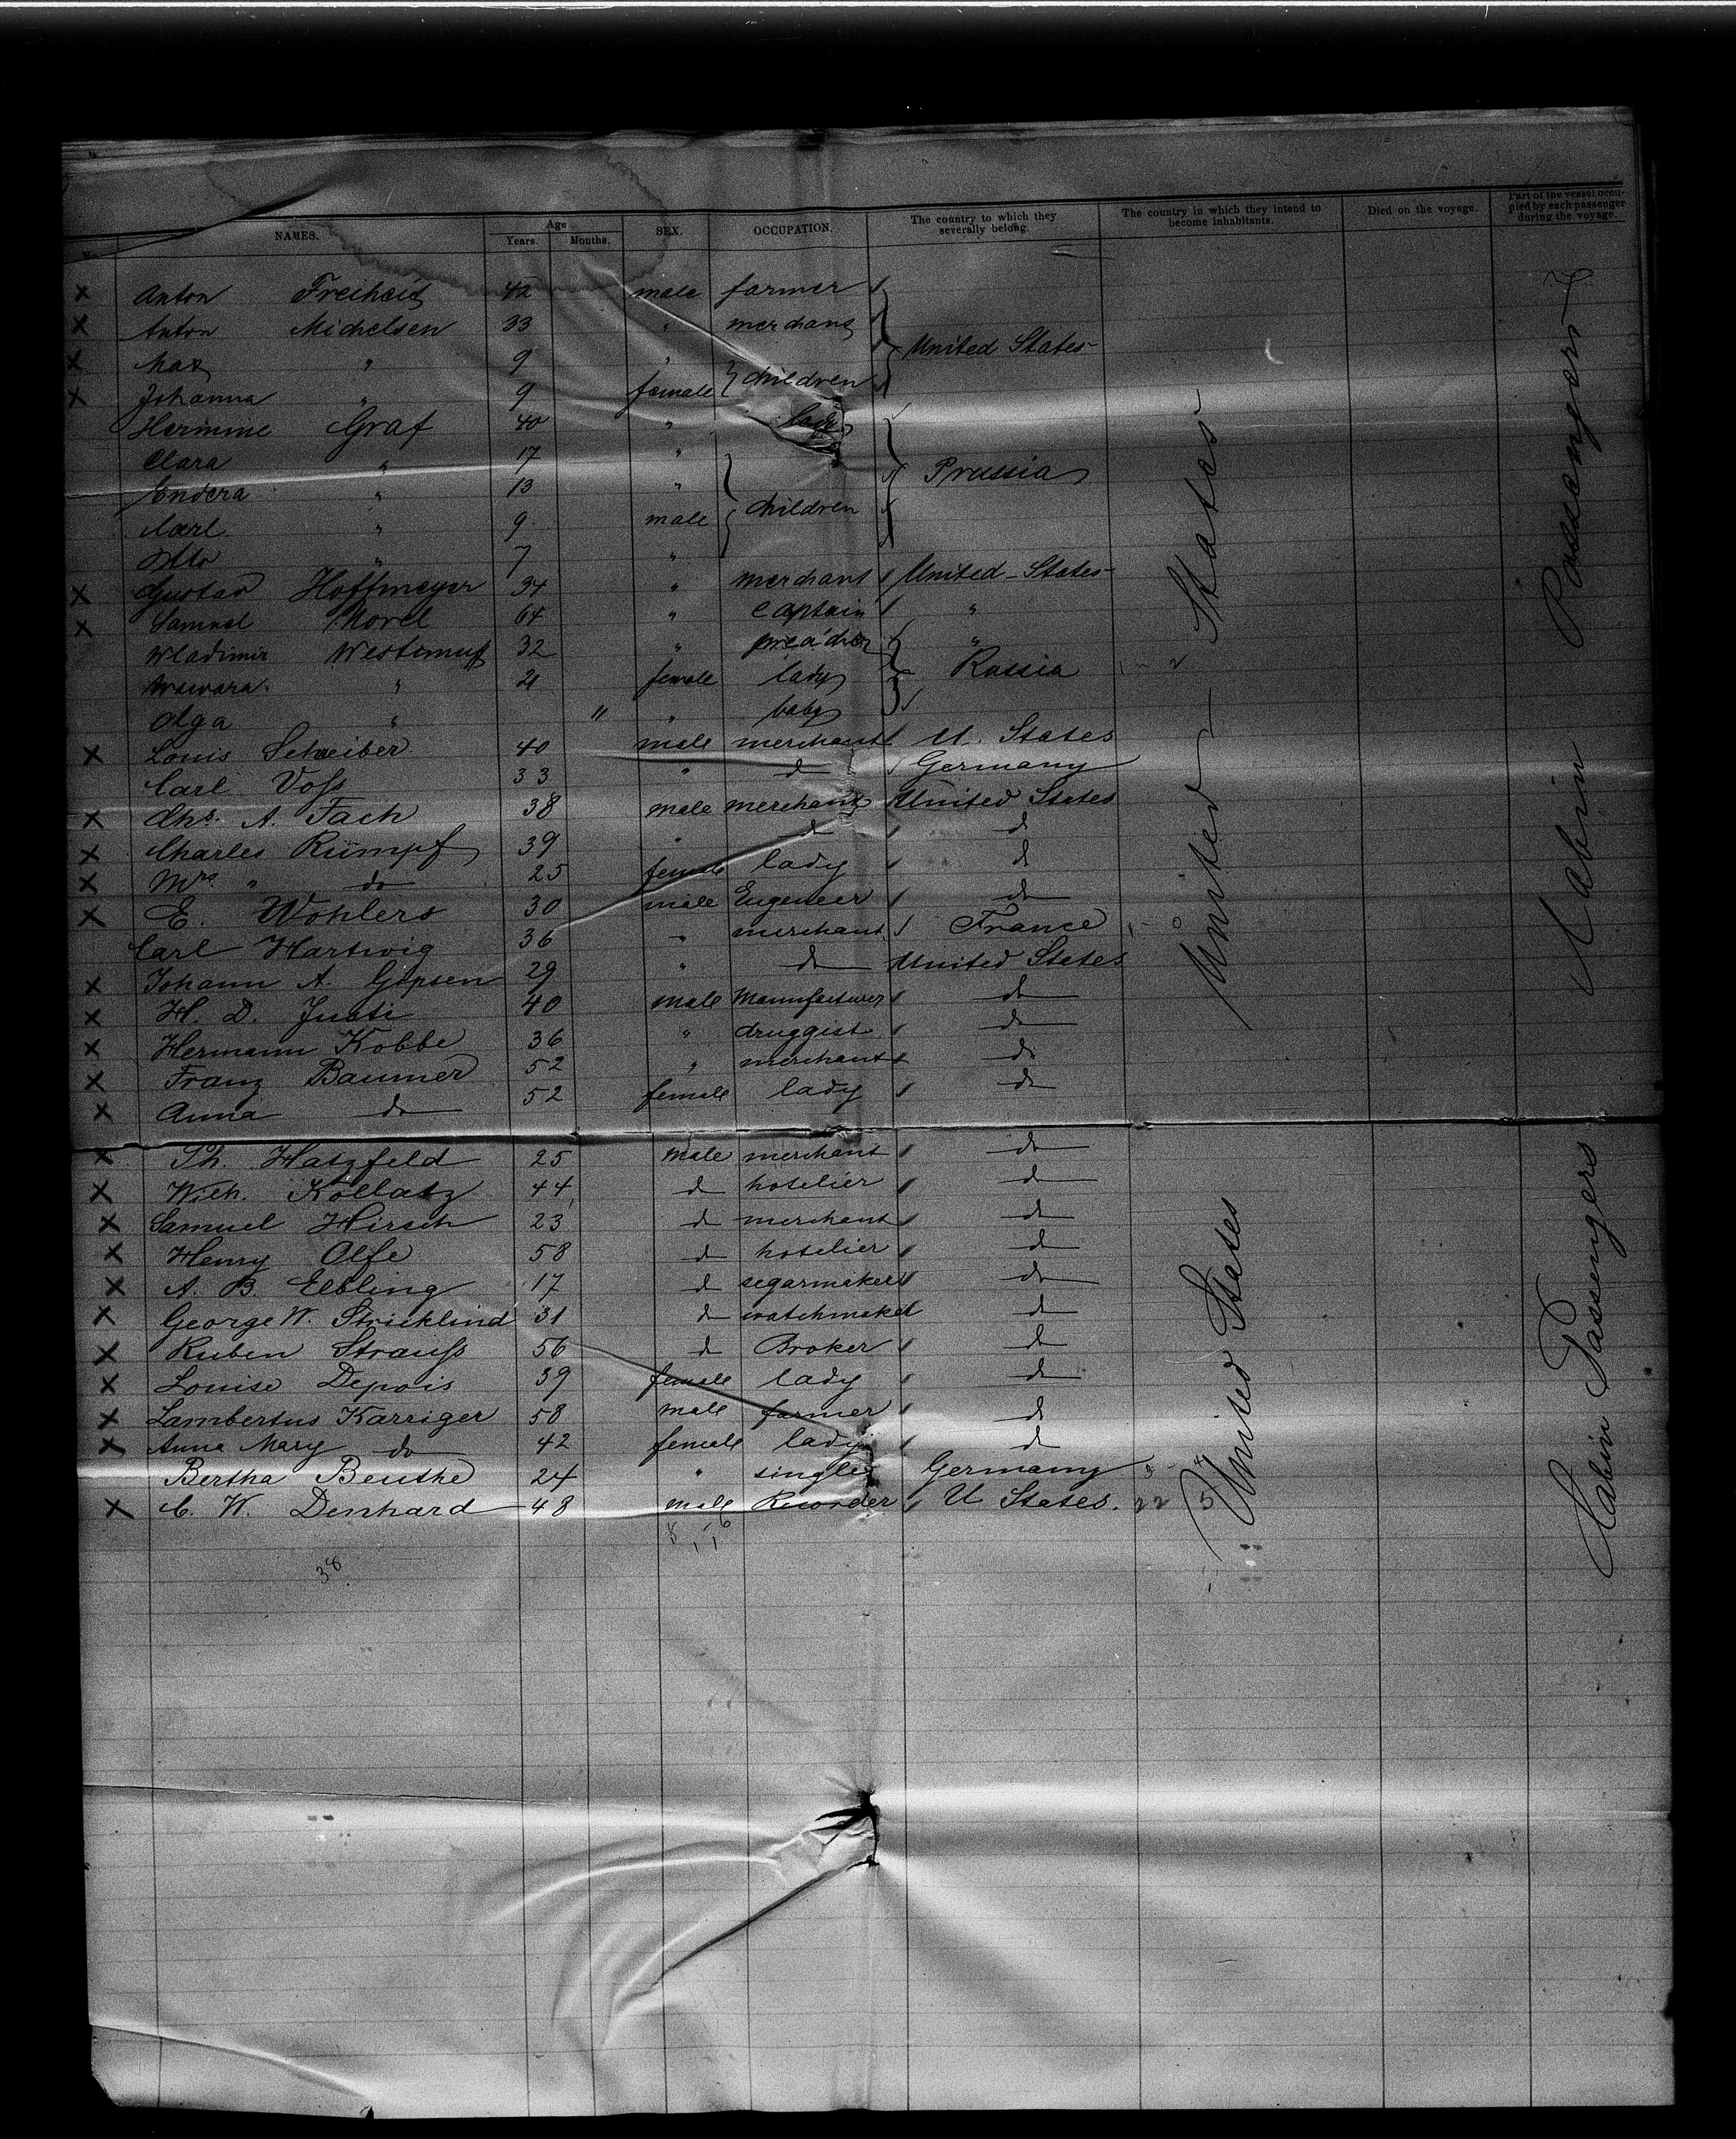 No. NAMES. Age Years. Months. SEX. OCCUPATION. The country to which they severally belong. The country in which they intend to become inhabitants. Died on the voyage. Part of the vessel occupied by each passenger during the voyage.
X Anton Freiheit 42 male farmer
X Anton Michelsen 33 " merchant
United States
X Max " 9 "
children
X Johanna " 9 female
Hermine Graf 40 " lady
Clara " 17 "
Prussia
Endera " 13 "
children
Carl " 9 male
Otto " 7 "
X Gustav Hoffmeyer 34 " merchant United States
X Samuel 64 " captain "
Wladimir 32 " "
Russia
21 female lady
Olga " 11 " baby
X Louis Schreiber 40 male merchant U. States
Carl Voss 33 " do Germany
X Chs. A. Fach 38 male merchant United States
X Charles Rümpf 39 " do do
X Mrs. " do 25 female lady do
X E. Wohlers 30 male Eugeneer do
Carl Hartwig 36 " merchant France
X Johann A. 29 " do United States
X H. D. Justi 40 male Manufacturer do
X Hermann Kobbe 36 " druggist do
X Franz Baumer 52 " merchant do
X Anna do 52 female lady do
X Th. Hatzfeld 25 male merchant do
X Wilh. Kollatz 44 do hotelier do
X Samuel Hirsch 23 do merchant do
X Henry Olfe 58 do hotelier do
X A. B. Elbling 17 do segarmaker do
X George W. Stricklind 31 do watchmaker do
X Ruben Strauss 56 do Broker do
X Louise Depois 39 female lady do
X Lambertus Karriger 58 male farmer do
X Anna Mary do 42 female lady do
Bertha Beuthe 24 " single Germany
X C. W. Denhard 48 male Recorder U States. 22
38
United States
United States
Cabin Passengers
Cabin Passengers